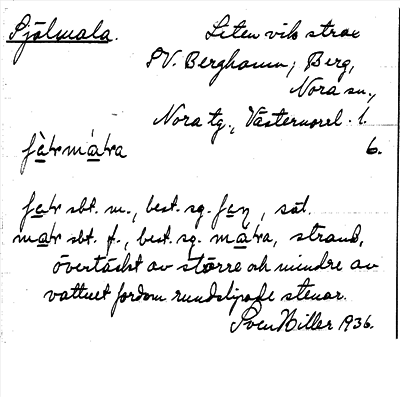 Själmala. Liten vik strax
SV. Berghamn, Berg,
Nora sn.,
Nora tg., Västernorrl. l.
6.
fà̱ɫrmá̱ɫra
sbt. m., best. sg. , säl.
sbt. f., best. sg. , strand,
övertäckt av större och mindre av
vattnet fordom rundslipade stenar.
Sven Hiller 1936.